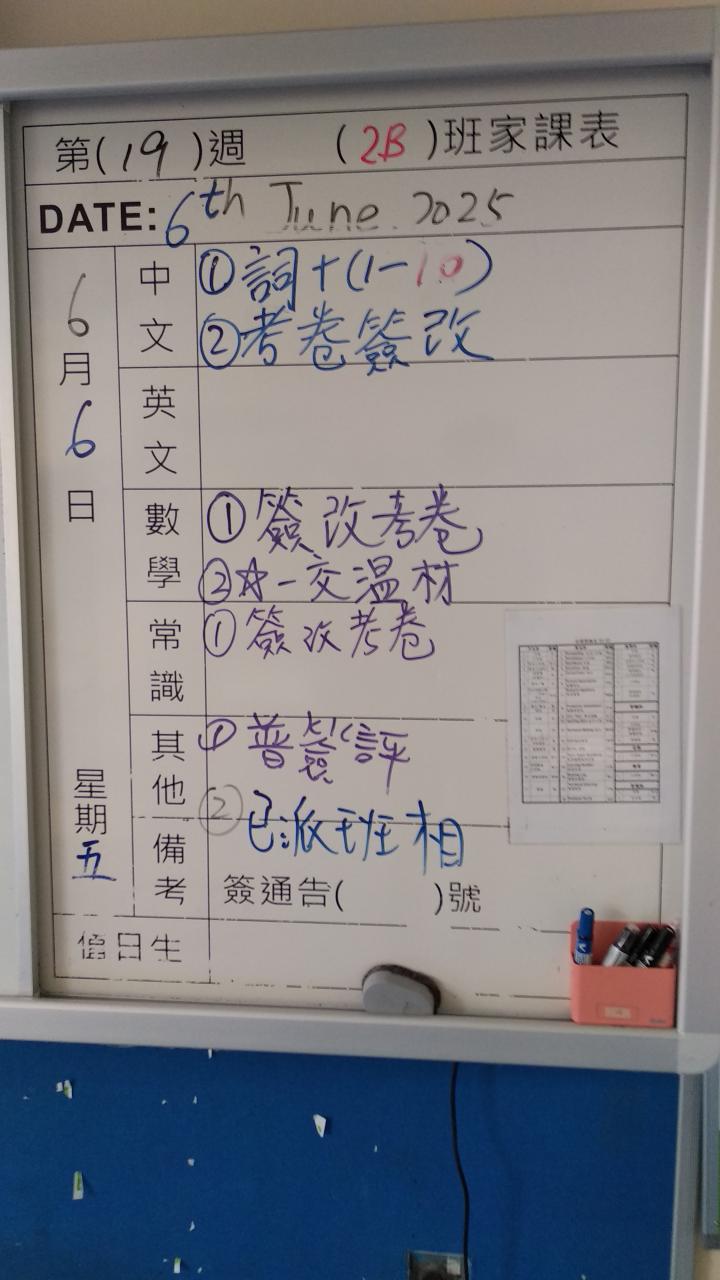 第(19)週 (2B)班家課表
DATE: 6th June 2025
6月6日
星期五
中文
①詞十(1-10)
②考卷簽改
英文
數學
①簽改考卷
②☆-交温材
常識
①簽改考卷
其他
①普簽評
②已派班相
備考
簽通告( )號
值日生